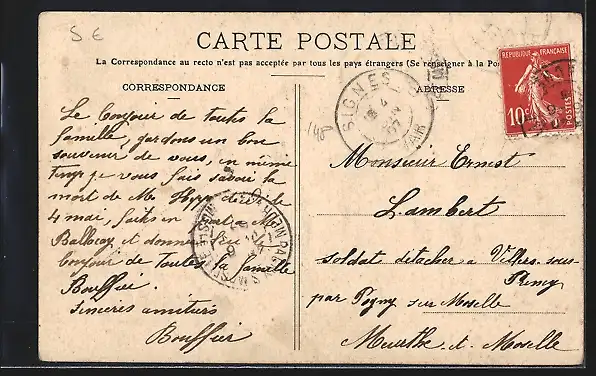 5 E
CARTE POSTALE
La Correspondance au recto n'est pas acceptée par tous les pays étrangers (Se renseigner à la Po
CORRESPONDANCE
ADRESSE
RÉPUBLIQUE FRANÇAISE
10c
POSTES
SIGNES
4
07
VAR
Le Bonjour de toute la
famille, gardons un bon
souvenir de vous, en même
temp je vous fais savoir la
mort de Mr décédé le
4 mai, faites en part a Mr
Balbocy et donné lui le
bonjour de toute la famille
Bouffier.
Sincères amitiés
Bouffier
Monsieur Ernest
Lambert
soldat détacher a Villers-sous-
Preny
par Pagny sur Moselle
Meurthe-et-Moselle